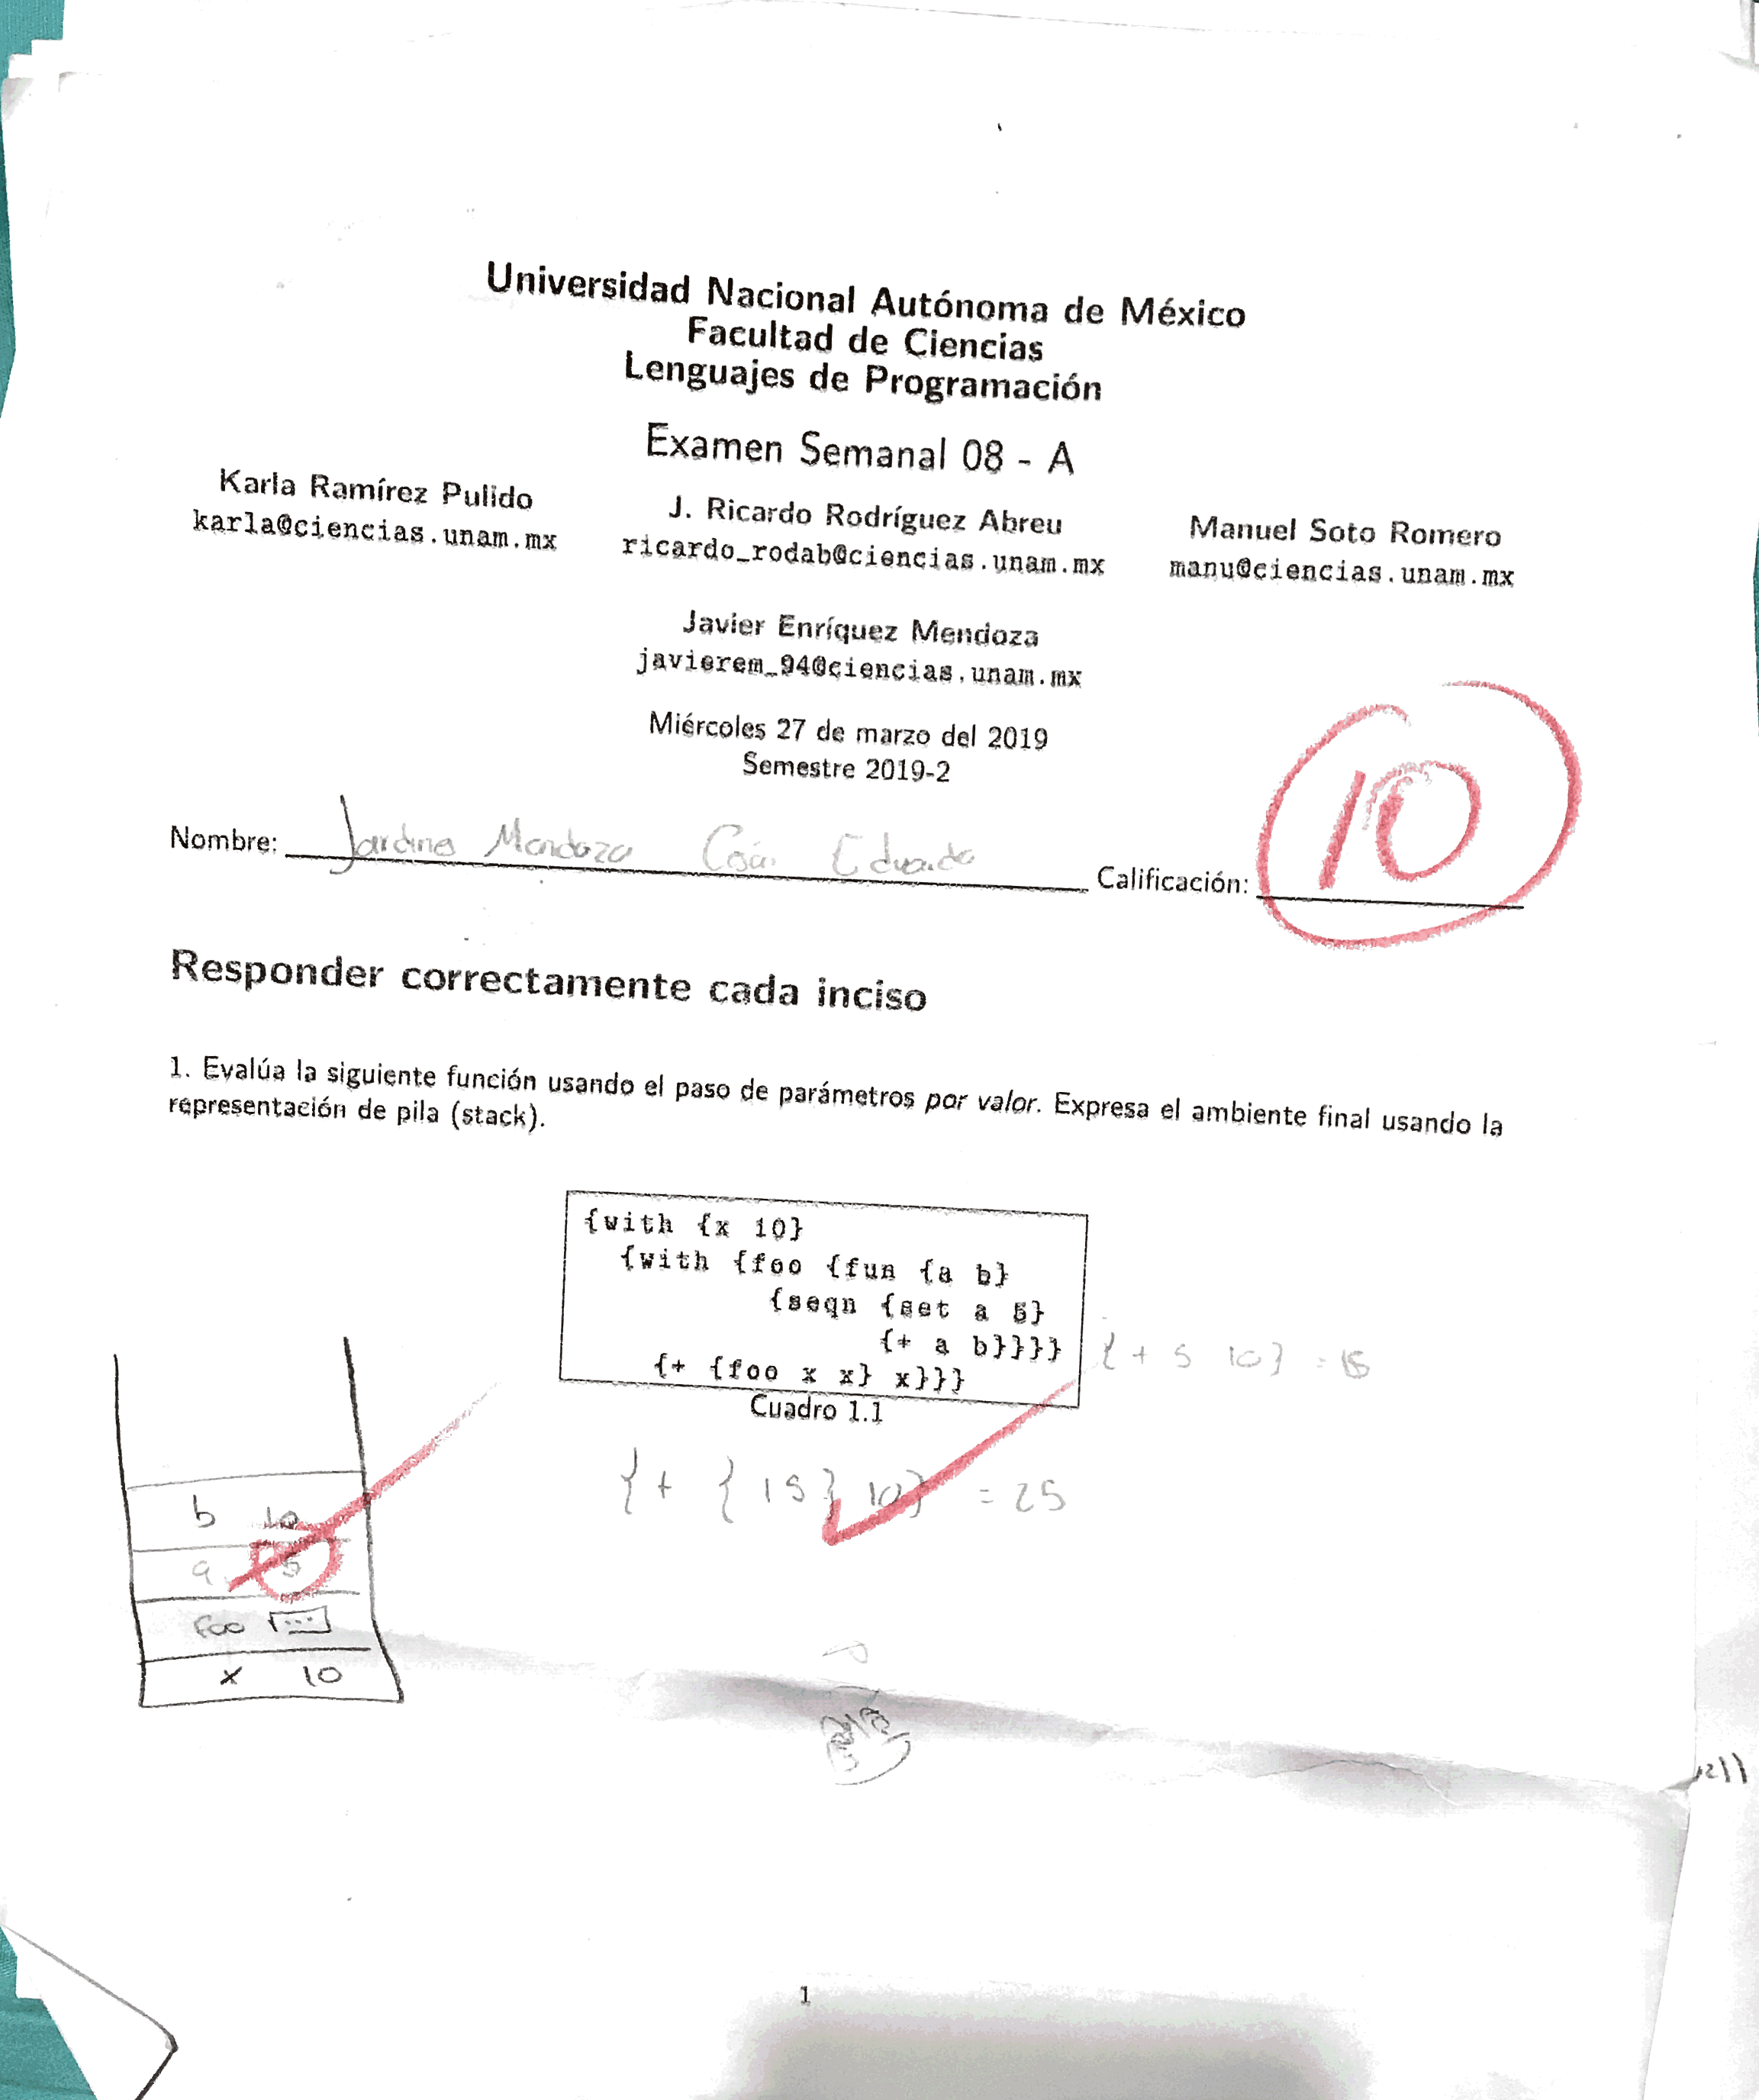 Universidad Nacional Autónoma de México
Facultad de Ciencias
Lenguajes de Programación
Examen Semanal 08 - A
Karla Ramírez Pulido
karla@ciencias.unam.mx
J. Ricardo Rodríguez Abreu
ricardo_rodab@ciencias.unam.mx
Manuel Soto Romero
manu@ciencias.unam.mx
Javier Enríquez Mendoza
javierem_94@ciencias.unam.mx
Miércoles 27 de marzo del 2019
Semestre 2019-2
Nombre: Jardines Mendoza Eduardo Calificación: 10
Responder correctamente cada inciso
1. Evalúa la siguiente función usando el paso de parámetros por valor. Expresa el ambiente final usando la
representación de pila (stack).
{with {x 10}
{with {foo {fun {a b}
{seqn {set a 5}
{+ a b}}}} {+ 5 10} = 15
{+ {foo x x} x}}}
Cuadro 1.1
{+ {15} 10} = 25
b 10
a 5
foo ...
x 10
1